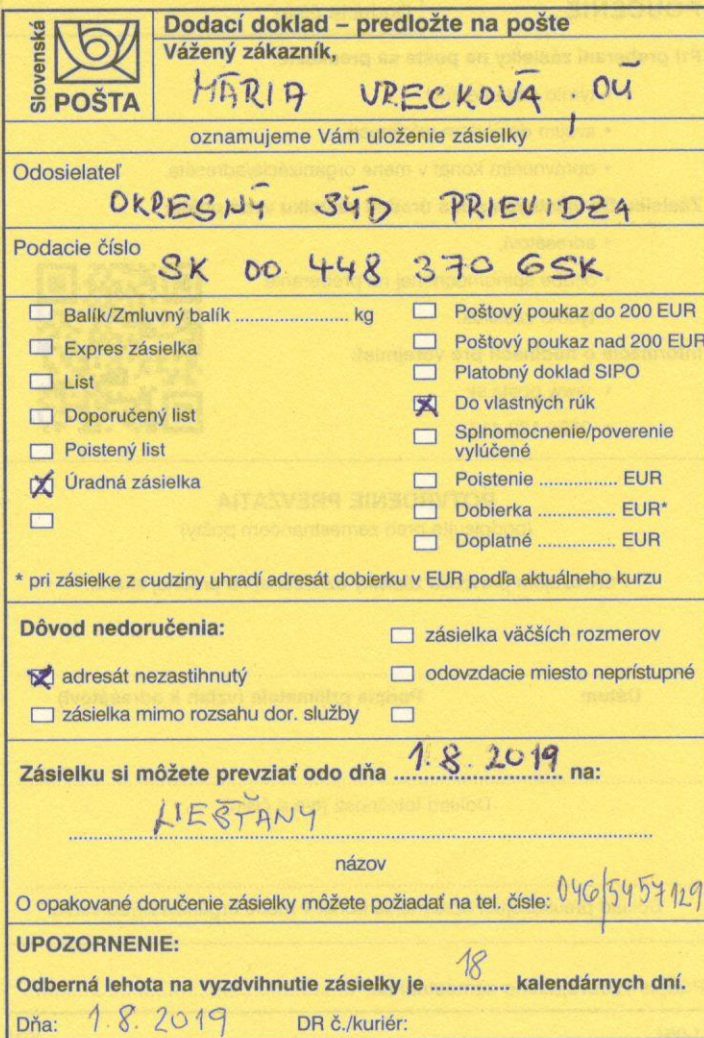 Slovenská
POŠTA
Dodací doklad – predložte na pošte
Vážený zákazník,
MÁRIA VRECKOVÁ, OÚ
oznamujeme Vám uloženie zásielky
Odosielateľ
OKRESNÝ SÚD PRIEVIDZA
Podacie číslo
SK 00 448 370 6SK
Balík/Zmluvný balík ........................ kg
Expres zásielka
List
Doporučený list
Poistený list
Úradná zásielka
Poštový poukaz do 200 EUR
Poštový poukaz nad 200 EUR
Platobný doklad SIPO
Do vlastných rúk
Splnomocnenie/poverenie
vylúčené
Poistenie ................ EUR
Dobierka ................ EUR*
Doplatné ................ EUR
* pri zásielke z cudziny uhradí adresát dobierku v EUR podľa aktuálneho kurzu
Dôvod nedoručenia:
adresát nezastihnutý
zásielka mimo rozsahu dor. služby
zásielka väčších rozmerov
odovzdacie miesto neprístupné
Zásielku si môžete prevziať odo dňa 1.8.2019 na:
LIEŠŤANY
názov
O opakované doručenie zásielky môžete požiadať na tel. čísle: 046/5457129
UPOZORNENIE:
Odberná lehota na vyzdvihnutie zásielky je 18 kalendárnych dní.
Dňa: 1.8.2019 DR č./kuriér: